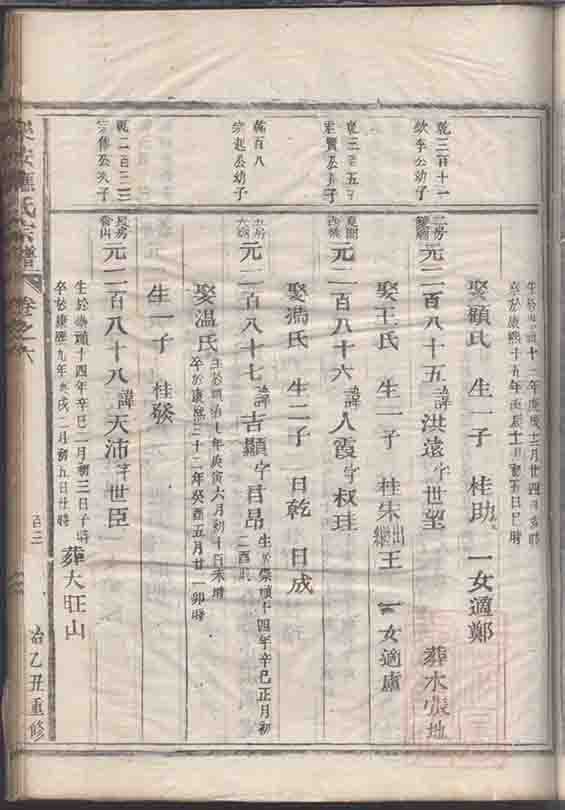 生於 十二年庚戌十二月廿四日亥時
卒於康熙十五年 辰十一月初 日巳時
娶顧氏 生一子 桂助 一女適鄭
乾三百十一
欽李公幼子
二房
元二百八十五諱洪遠字世望 葬水張地
娶王氏 生一子 桂朱出繼王 一女適盧
乾三 五
元二百八十六諱人霞字叔珪
娶馮氏 生二子 日乾 日成
乾百八
宗起公幼子
元二百八十七諱吉顯字目昂 生於崇禎十四年辛巳正月初二酉時
娶温氏 生於順治七年庚寅六月初十日未時 卒於康熙三十二年癸酉五月廿一卯時
生一子 桂發
乾二百二
公次子
長房
元二百八十八諱天沛字世臣
生於崇禎十四年辛巳一月初三日子時
卒於康熙九年庚戌二月初五日丑時
葬大旺山
應氏宗譜 卷之六 百二 治乙丑重修